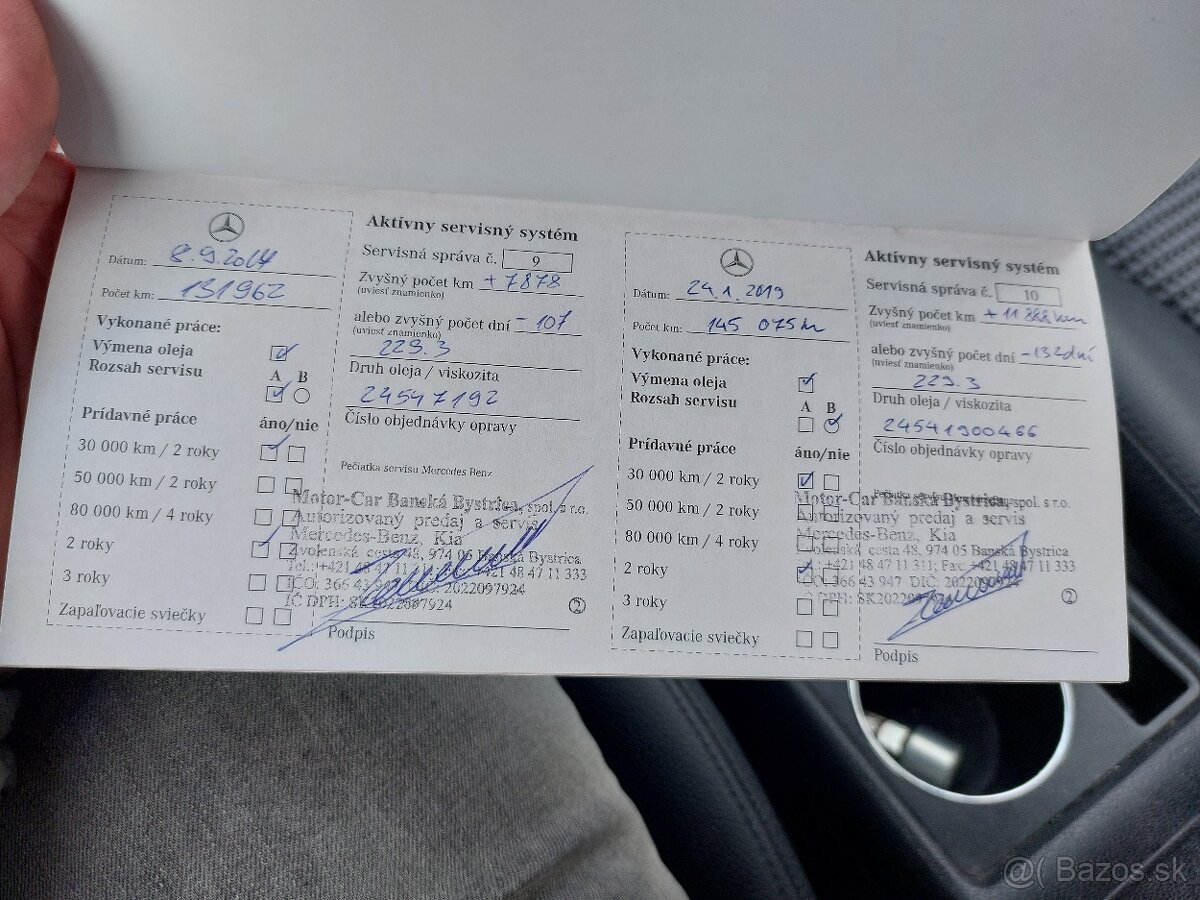 Dátum: 8.9.2017
Počet km: 131962
Vykonané práce:
Výmena oleja
Rozsah servisu
A B
Prídavné práce áno/nie
30 000 km / 2 roky
50 000 km / 2 roky
80 000 km / 4 roky
2 roky
3 roky
Zapaľovacie sviečky
Aktívny servisný systém
Servisná správa č. 9
Zvyšný počet km +7878
(uviesť znamienko)
alebo zvyšný počet dní -107
(uviesť znamienko)
229.3
Druh oleja / viskozita
24547192
Číslo objednávky opravy
Pečiatka servisu Mercedes Benz
Motor-Car Banská Bystrica, spol. s r.o.
Autorizovaný predaj a servis
Mercedes-Benz, Kia
Zvolenská cesta 48, 974 05 Banská Bystrica
Tel.: +421 48 47 11 +421 48 47 11 333
IČO: 366 43 2022097924
IČ DPH: SK2022097924
2
Podpis
Dátum: 24.1.2019
Počet km: 145 075 km
Vykonané práce:
Výmena oleja
Rozsah servisu
A B
Prídavné práce áno/nie
30 000 km / 2 roky
50 000 km / 2 roky
80 000 km / 4 roky
2 roky
3 roky
Zapaľovacie sviečky
Aktívny servisný systém
Servisná správa č. 10
Zvyšný počet km +11 888 km
(uviesť znamienko)
alebo zvyšný počet dní -132 dní
(uviesť znamienko)
229.3
Druh oleja / viskozita
24541900466
Číslo objednávky opravy
Motor-Car Banská Bystrica, spol. s r.o.
Autorizovaný predaj a servis
Mercedes-Benz, Kia
Zvolenská cesta 48, 974 05 Banská Bystrica
+421 48 47 11 311; Fax: +421 48 47 11 333
366 43 947 DIČ:
DPH:
2
Podpis
@( Bazos.sk